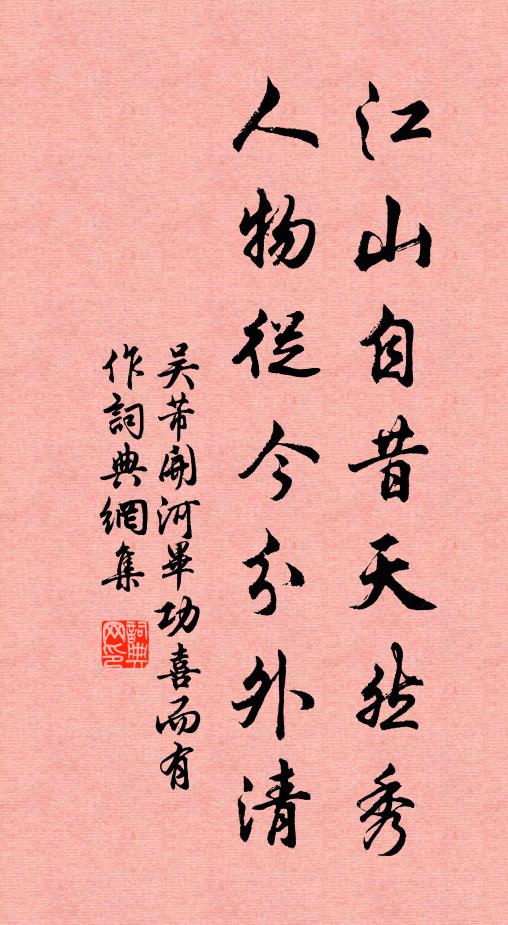 江山自昔天然秀
人物從今分外清
吴芾開河畢功喜而有
作詞典網集
詞典
网印